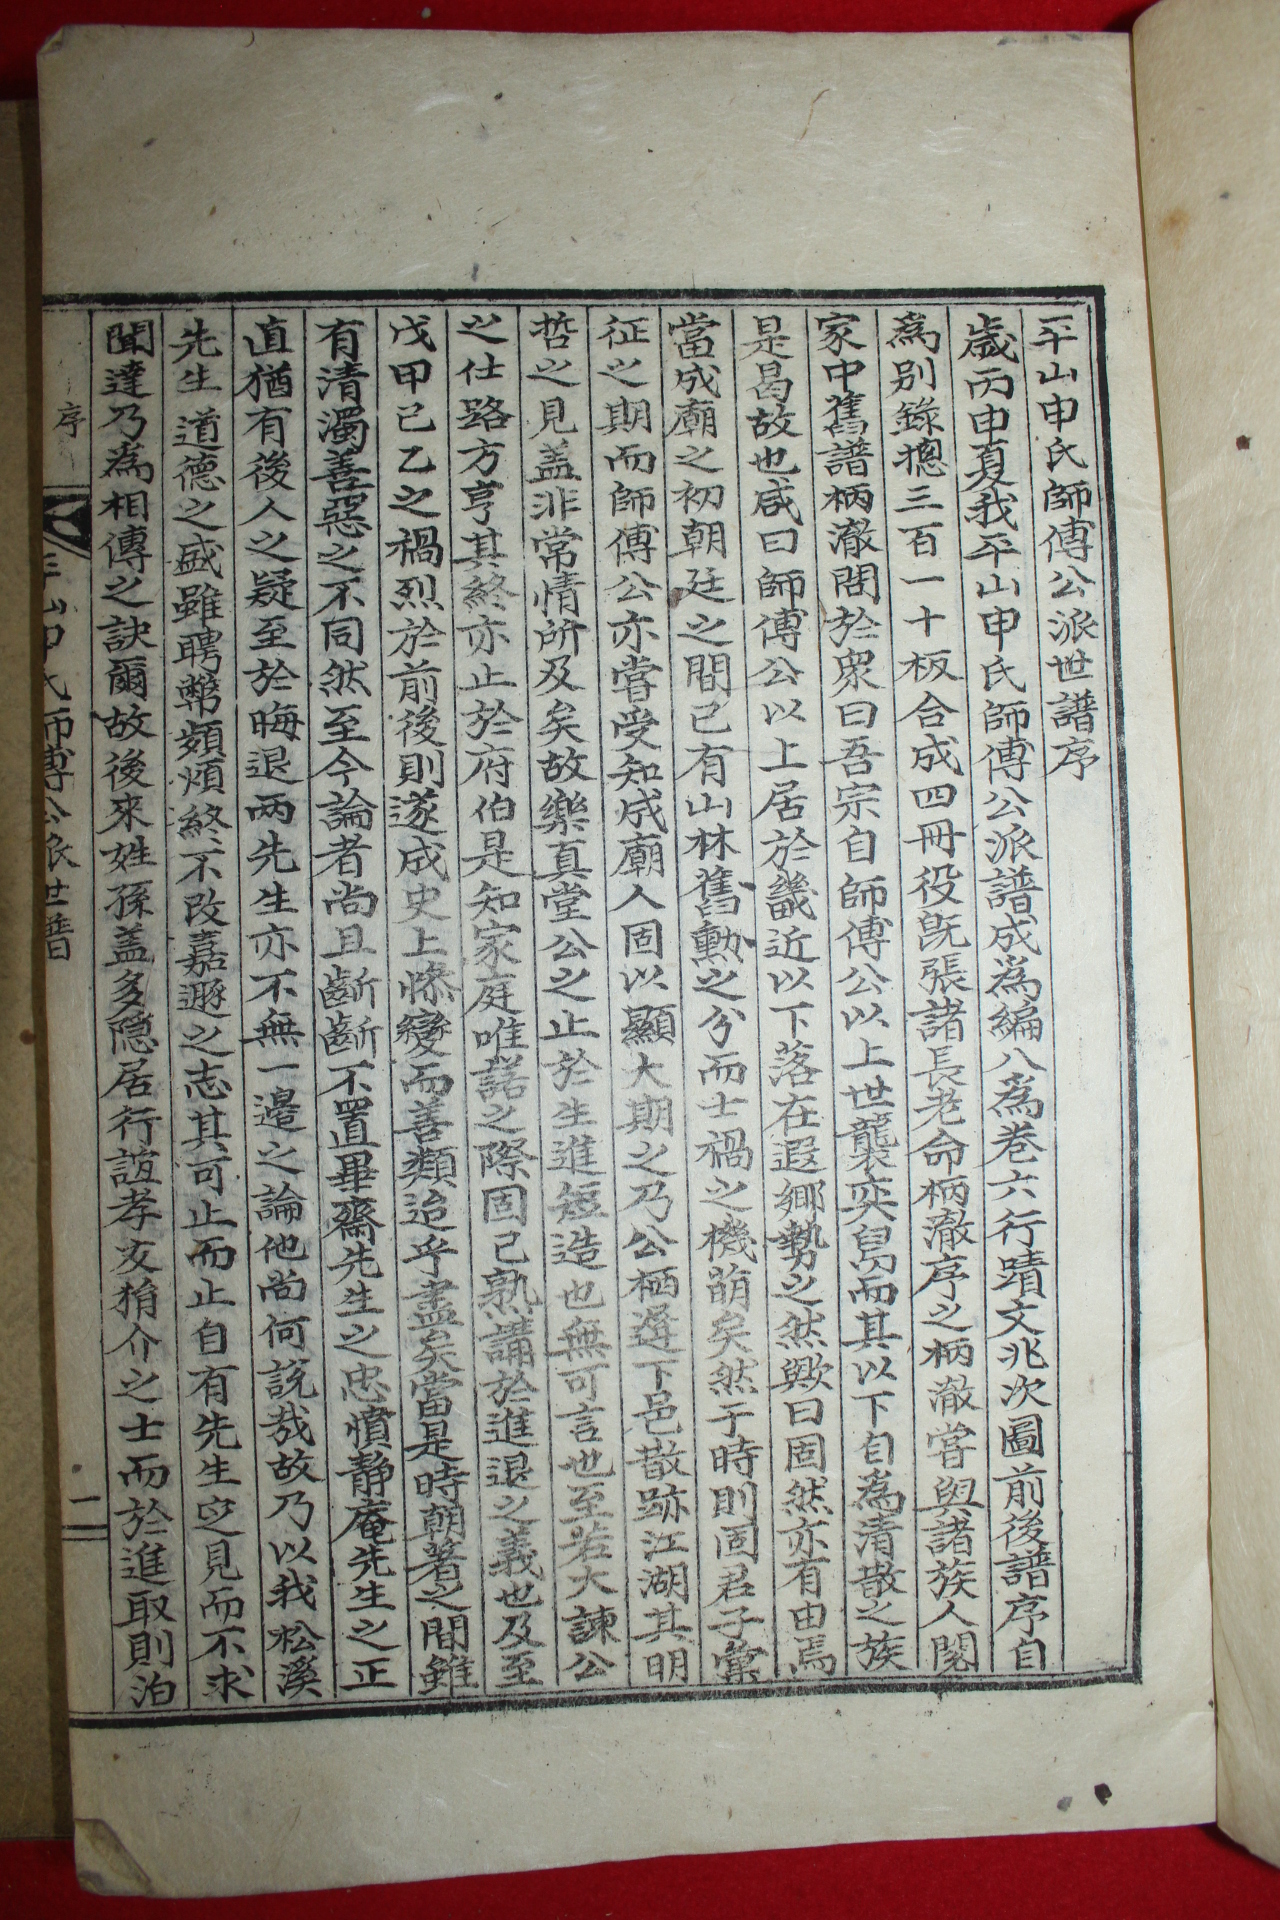 平山申氏師傅公派世譜序
歲丙申夏我平山申氏師傅公派譜成爲編八爲卷六行蹟文兆次圖前後譜序自
爲别錄摠三百一十板合成四冊役旣張諸長老命柄澈序之柄澈嘗與諸族人閱
家中舊譜柄澈問於衆曰吾宗自師傅公以上世襲奕舃而其以下自爲淸散之族
是曷故也咸曰師傅公以上居於畿近以下落在遐鄕勢之然歟曰固然亦有由焉
當成廟之初朝廷之間已有山林舊勳之分而士禍之機萌矣然于時則固君子彙
征之期而師傅公亦嘗受知成廟人固以顯大期之乃公栖遲下邑散跡江湖其明
哲之見盖非常情所及矣故樂眞堂公之止於生進短造也無可言也至若大諫公
之仕路方亨其終亦止於府伯是知家庭唯諾之際固已熟講於進退之義也及至
戊甲己乙之禍烈於前後則遂成史上慘變而善類迨乎盡矣當是時朝著之間雖
有清濁善惡之不同然至今論者尚且齗齗不置畢齋先生之忠憤靜庵先生之正
直猶有後人之疑至於晦退两先生亦不無一邊之論他尚何說哉故乃以我松溪
先生道德之盛雖聘幣頻煩終不改嘉遯之志其可止而止自有先生定見而不求
聞達乃爲相傳之訣爾故後來姓孫盖多隠居行誼孝友狷介之士而於進取則泊
序
平山申氏師傅公派世譜
一